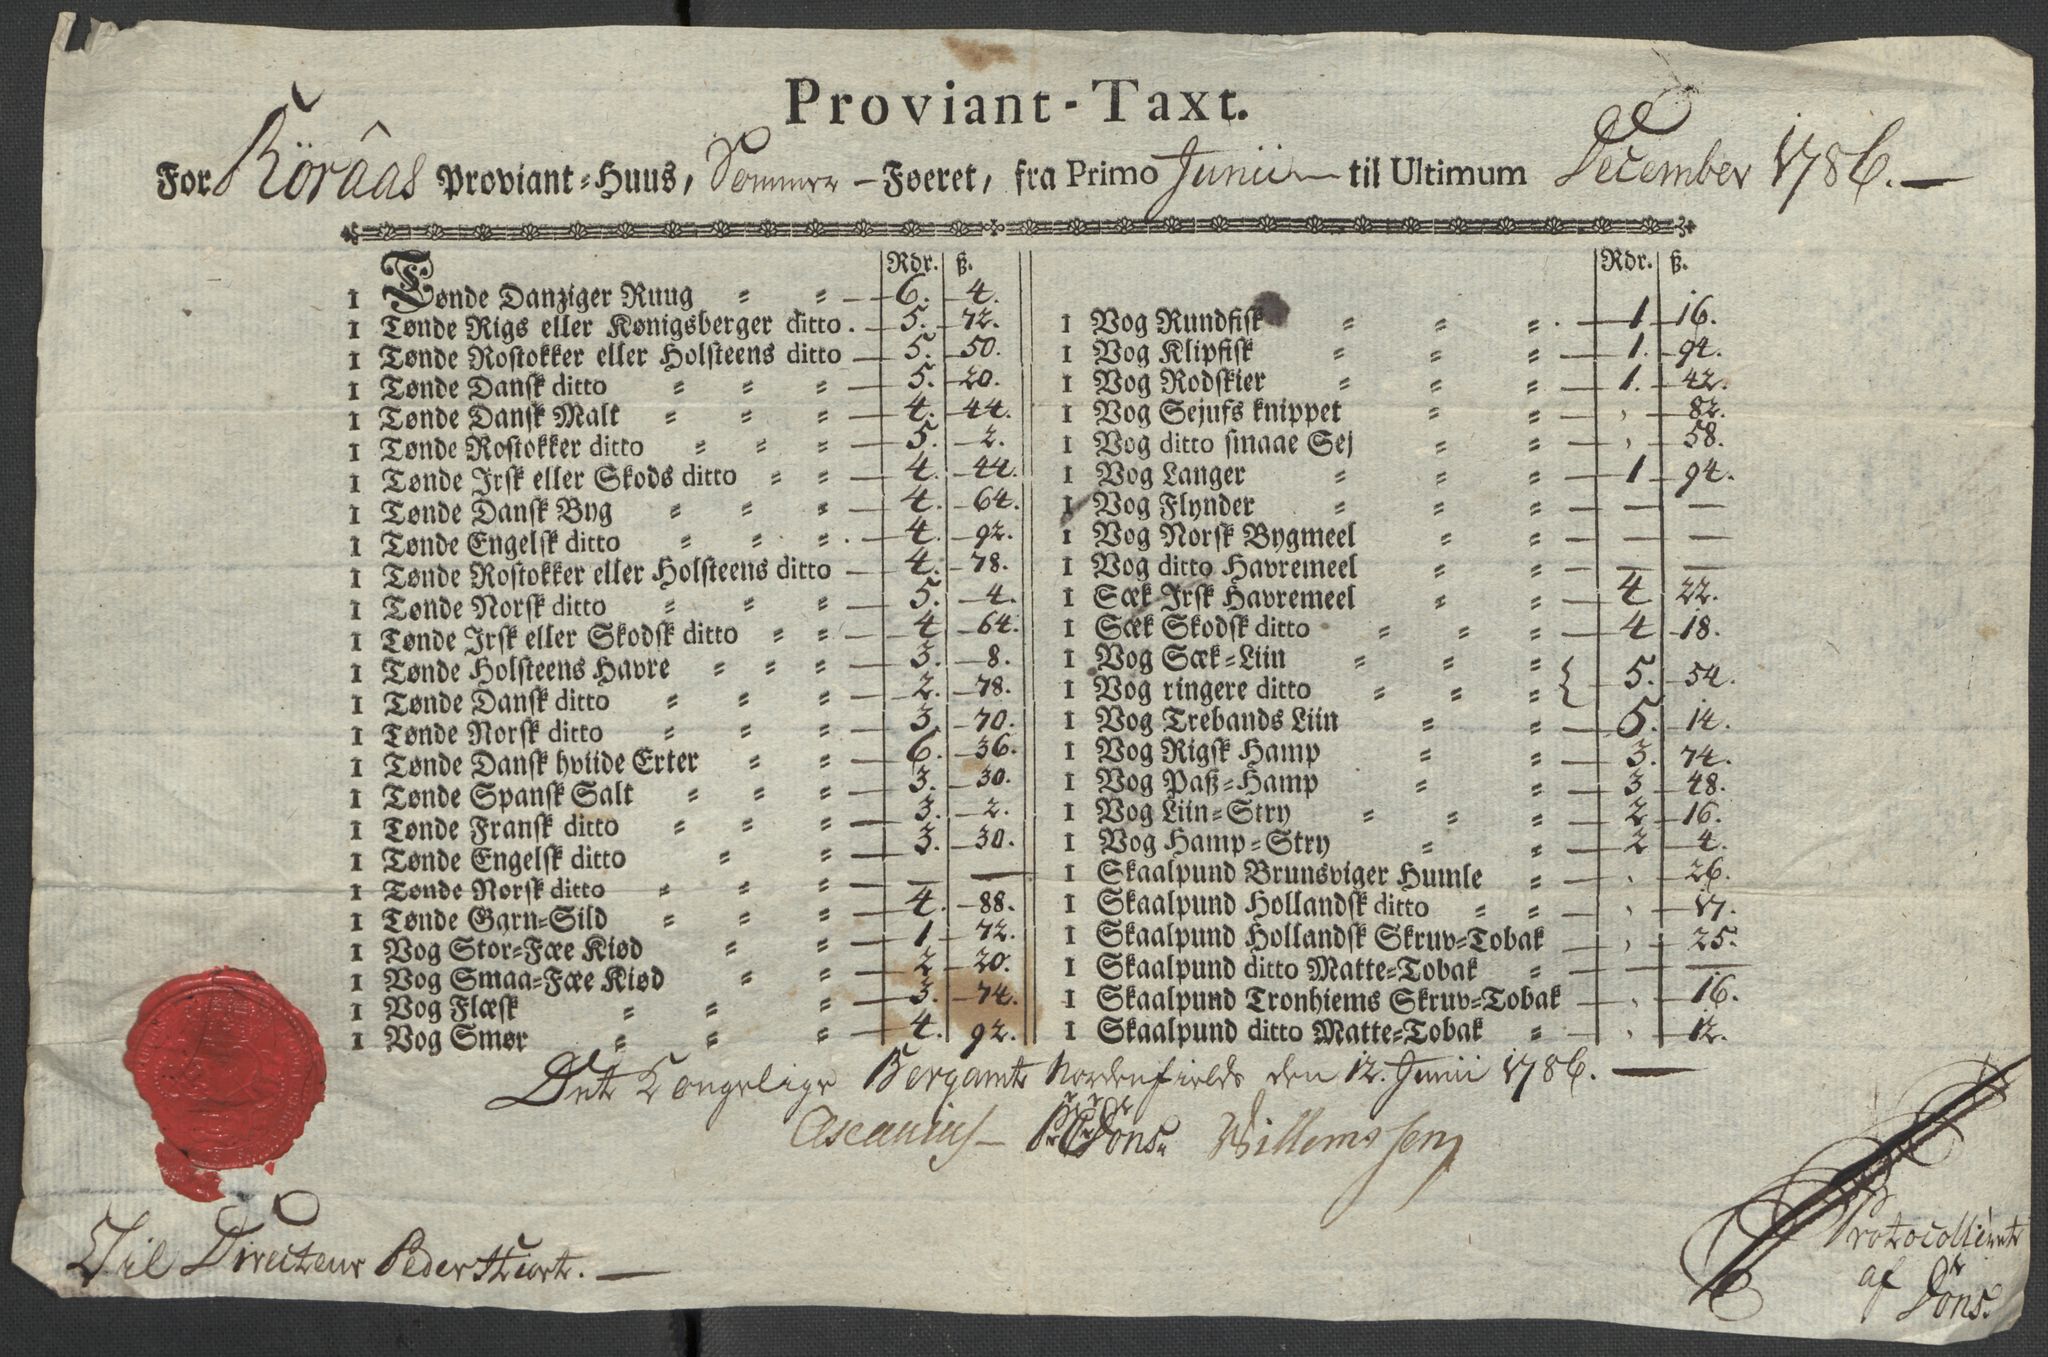 Proviant-Taxt.
For Röraas Proviant-Huus, Sommer-Føeret, fra Primo Junii til Ultimum December 1786. —
Rdr. ß.
1 Tønde Danziger Ruug 6. 4.
1 Tønde Rigs eller Kønigsberger ditto 5. 72.
1 Tønde Rostokker eller Holsteens ditto 5. 50.
1 Tønde Dansk ditto 5. 20.
1 Tønde Dansk Malt 4. 44.
1 Tønde Rostokker ditto 5. 2.
1 Tønde Irsk eller Skods ditto 4. 44.
1 Tønde Dansk Byg 4. 64.
1 Tønde Engelsk ditto 4. 92.
1 Tønde Rostokker eller Holsteens ditto 4. 78.
1 Tønde Norsk ditto 5. 4.
1 Tønde Irsk eller Skodsk ditto 4 64.
1 Tønde Holsteens Havre 3. 8.
1 Tønde Dansk ditto 2. 78.
1 Tønde Norsk ditto 3. 70.
1 Tønde Dansk hviide Erter 6. 36.
1 Tønde Spansk Salt 3. 30.
1 Tønde Fransk ditto 3. 2.
1 Tønde Engelsk ditto 3. 30.
1 Tønde Norsk ditto — —
1 Tønde Garn-Sild 4. 88.
1 Vog Stor-Fæe Kiød 1 72.
1 Vog Smaa-Fæe Kiød 2 20.
1 Vog Flæsk 3. 74.
1 Vog Smør 4. 92.
Rdr. ß.
1 Vog Rundfisk 1 16.
1 Vog Klipfisk 1. 94.
1 Vog Rodskier 1. 42.
1 Vog Sejufs knippet , 82.
1 Vog ditto smaae Sej , 58.
1 Vog Langer 1 94.
1 Vog Flynder — —
1 Vog Norsk Bygmeel — —
1 Vog ditto Havremeel — —
1 Sæk Irsk Havremeel 4 22.
1 Sæk Skodsk ditto 4 18.
1 Vog Sæk-Liin
1 Vog ringere ditto } 5. 54.
1 Vog Trebands Liin 5. 14.
1 Vog Rigsk Hamp 3. 74.
1 Vog Paß-Hamp 3 48.
1 Vog Liin-Stry 2 16.
1 Vog Hamp-Stry 2 4.
1 Skaalpund Brunsviger Humle , 26.
1 Skaalpund Hollandsk ditto , 17.
1 Skaalpund Hollandsk Skruv-Tobak , 25.
1 Skaalpund ditto Matte-Tobak — —
1 Skaalpund Tronhiems Skruv-Tobak , 16.
1 Skaalpund ditto Matte-Tobak , 12.
Det Kongelige Bergamt Nordenfields den 12. Junii 1786. —
Ascanius Dons. Willemssen
Til Directeur Peder Hiort. —
Protocolleret
af Dons.